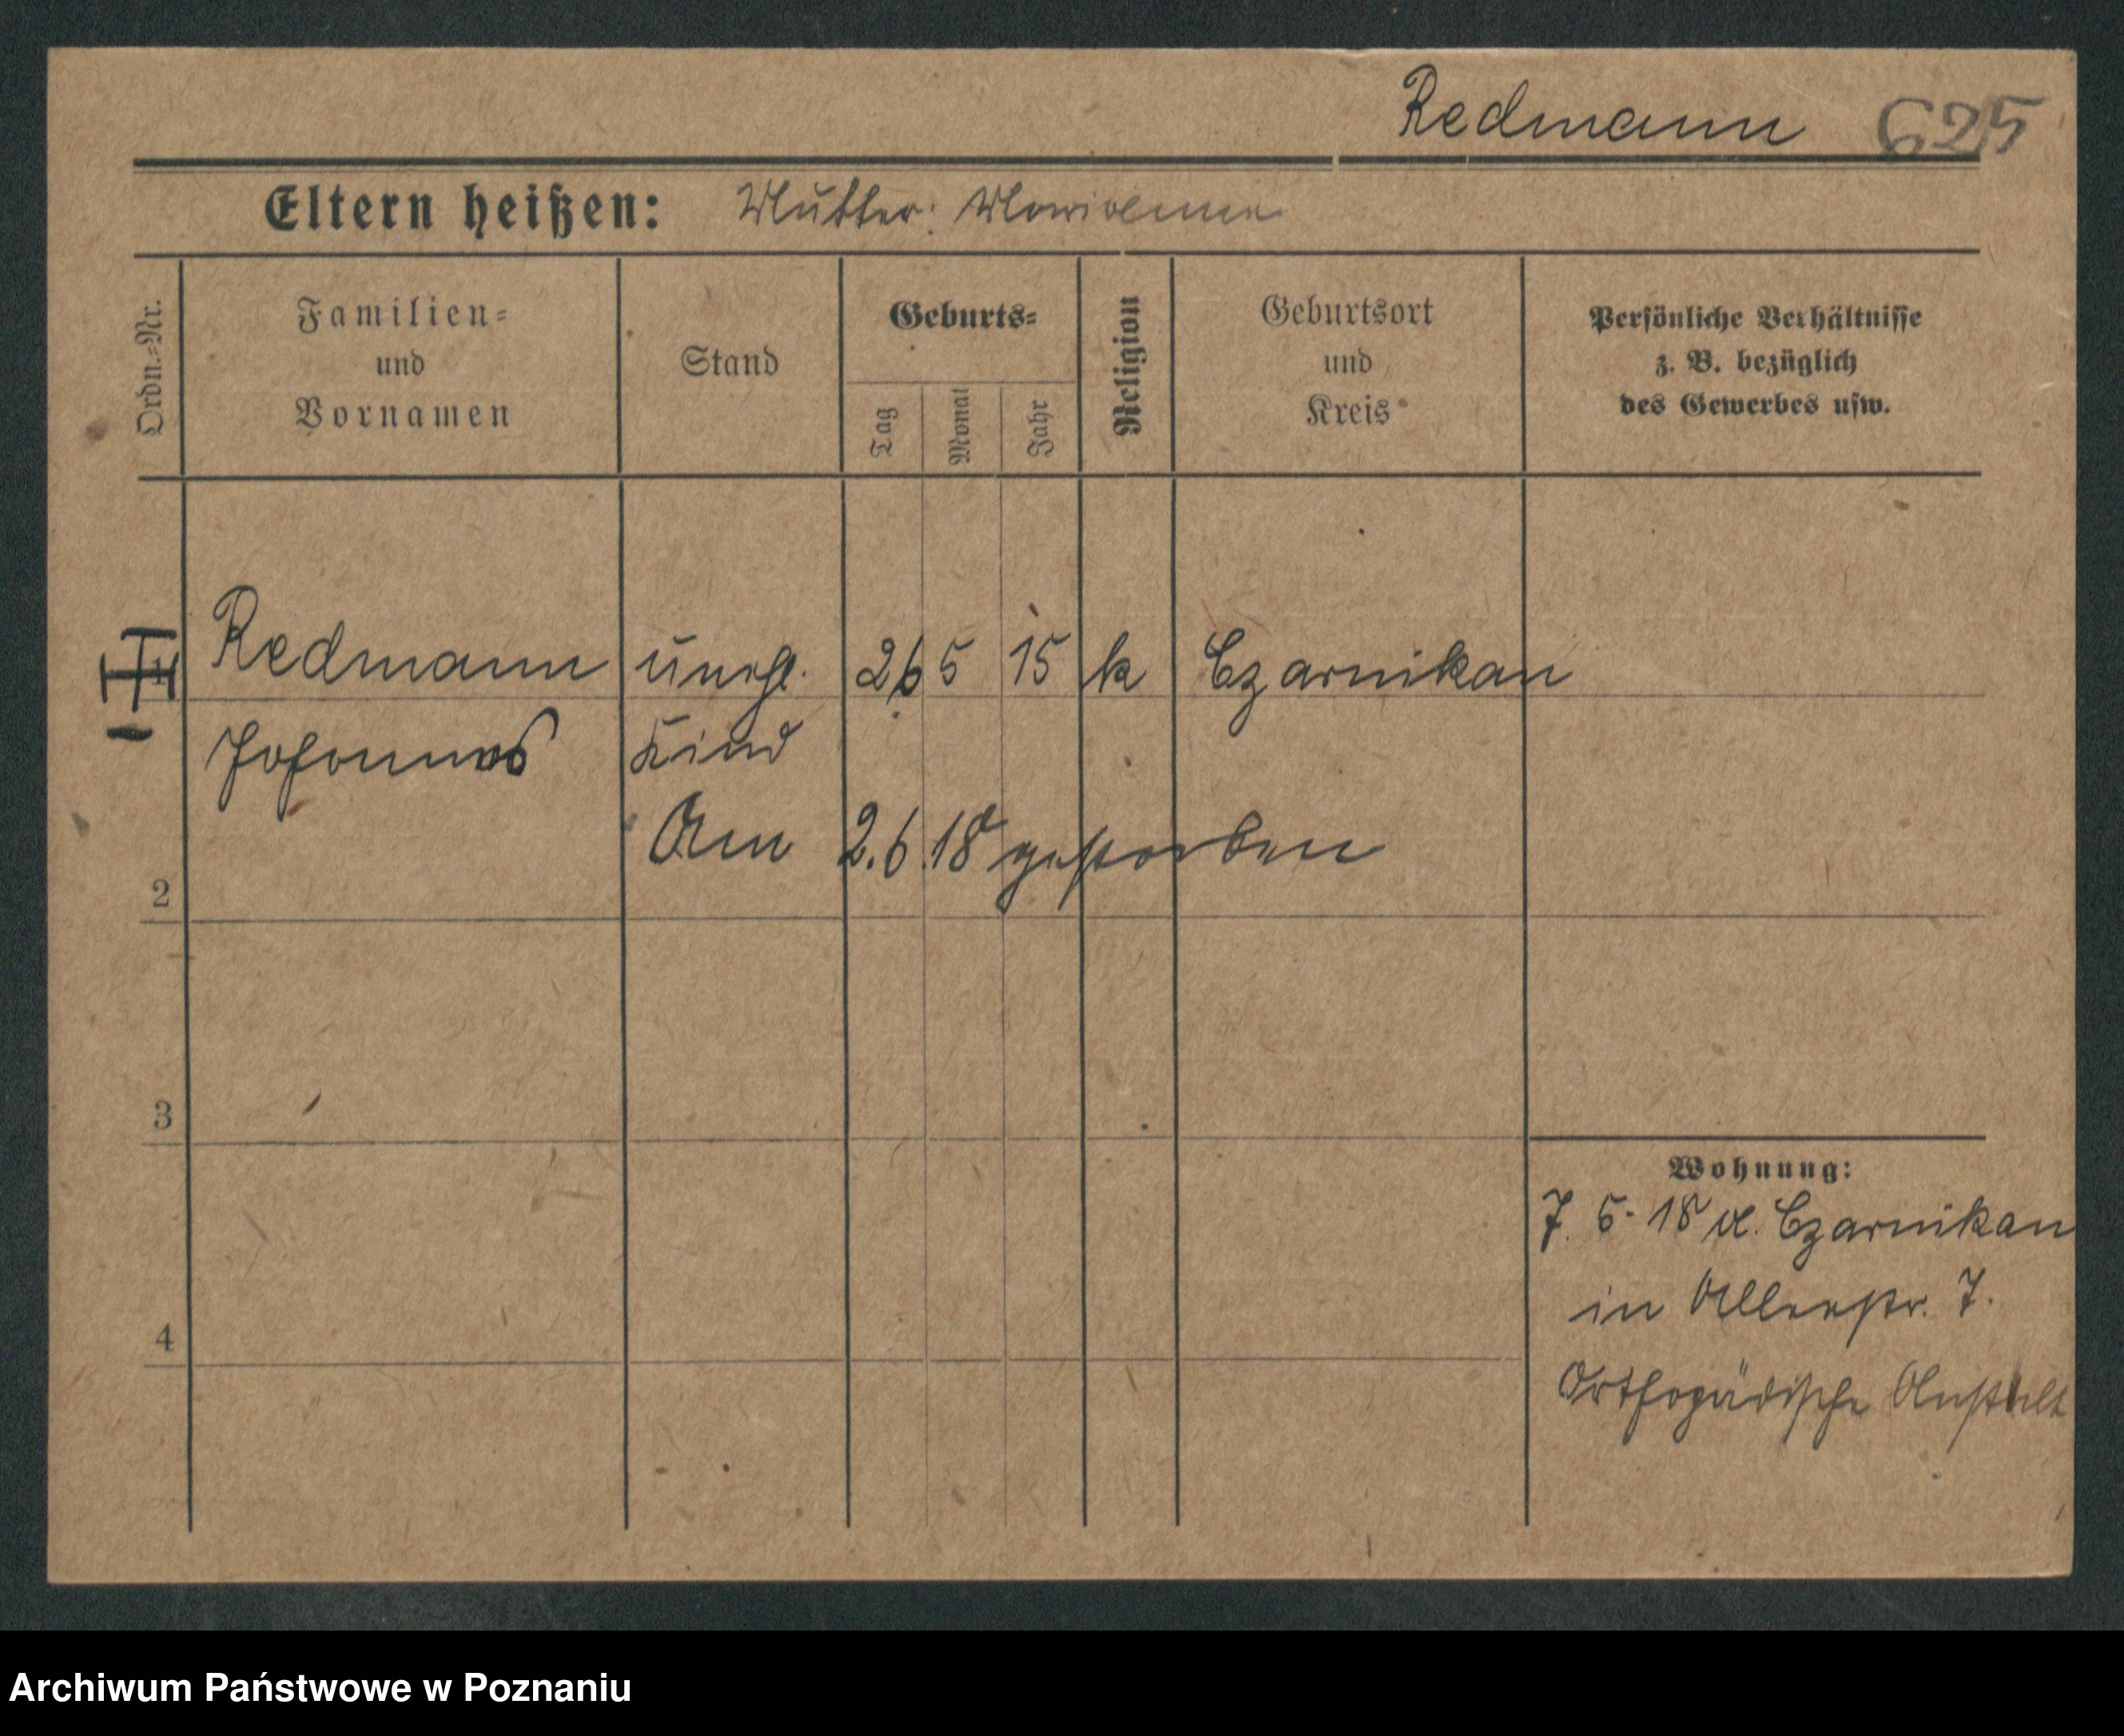 Redmann 625
Eltern heißen: Mutter: Marianna
Ordn.=Nr.
Familien=
und
Vornamen
Stand
Geburts=
Tag
Monat
Jahr
Religion
Geburtsort
und
Kreis
Persönliche Verhältnisse
z. B. bezüglich
des Gewerbes usw.
1 Redmann unehl. 26 5 15 k Czarnikau
Johannes Kind
Am 2.6.18 gestorben
2
3
4
Wohnung:
7. 5. 18 a. Czarnikau
in Allerstr. 7.
Orthopädische Anstalt
Archiwum Państwowe w Poznaniu